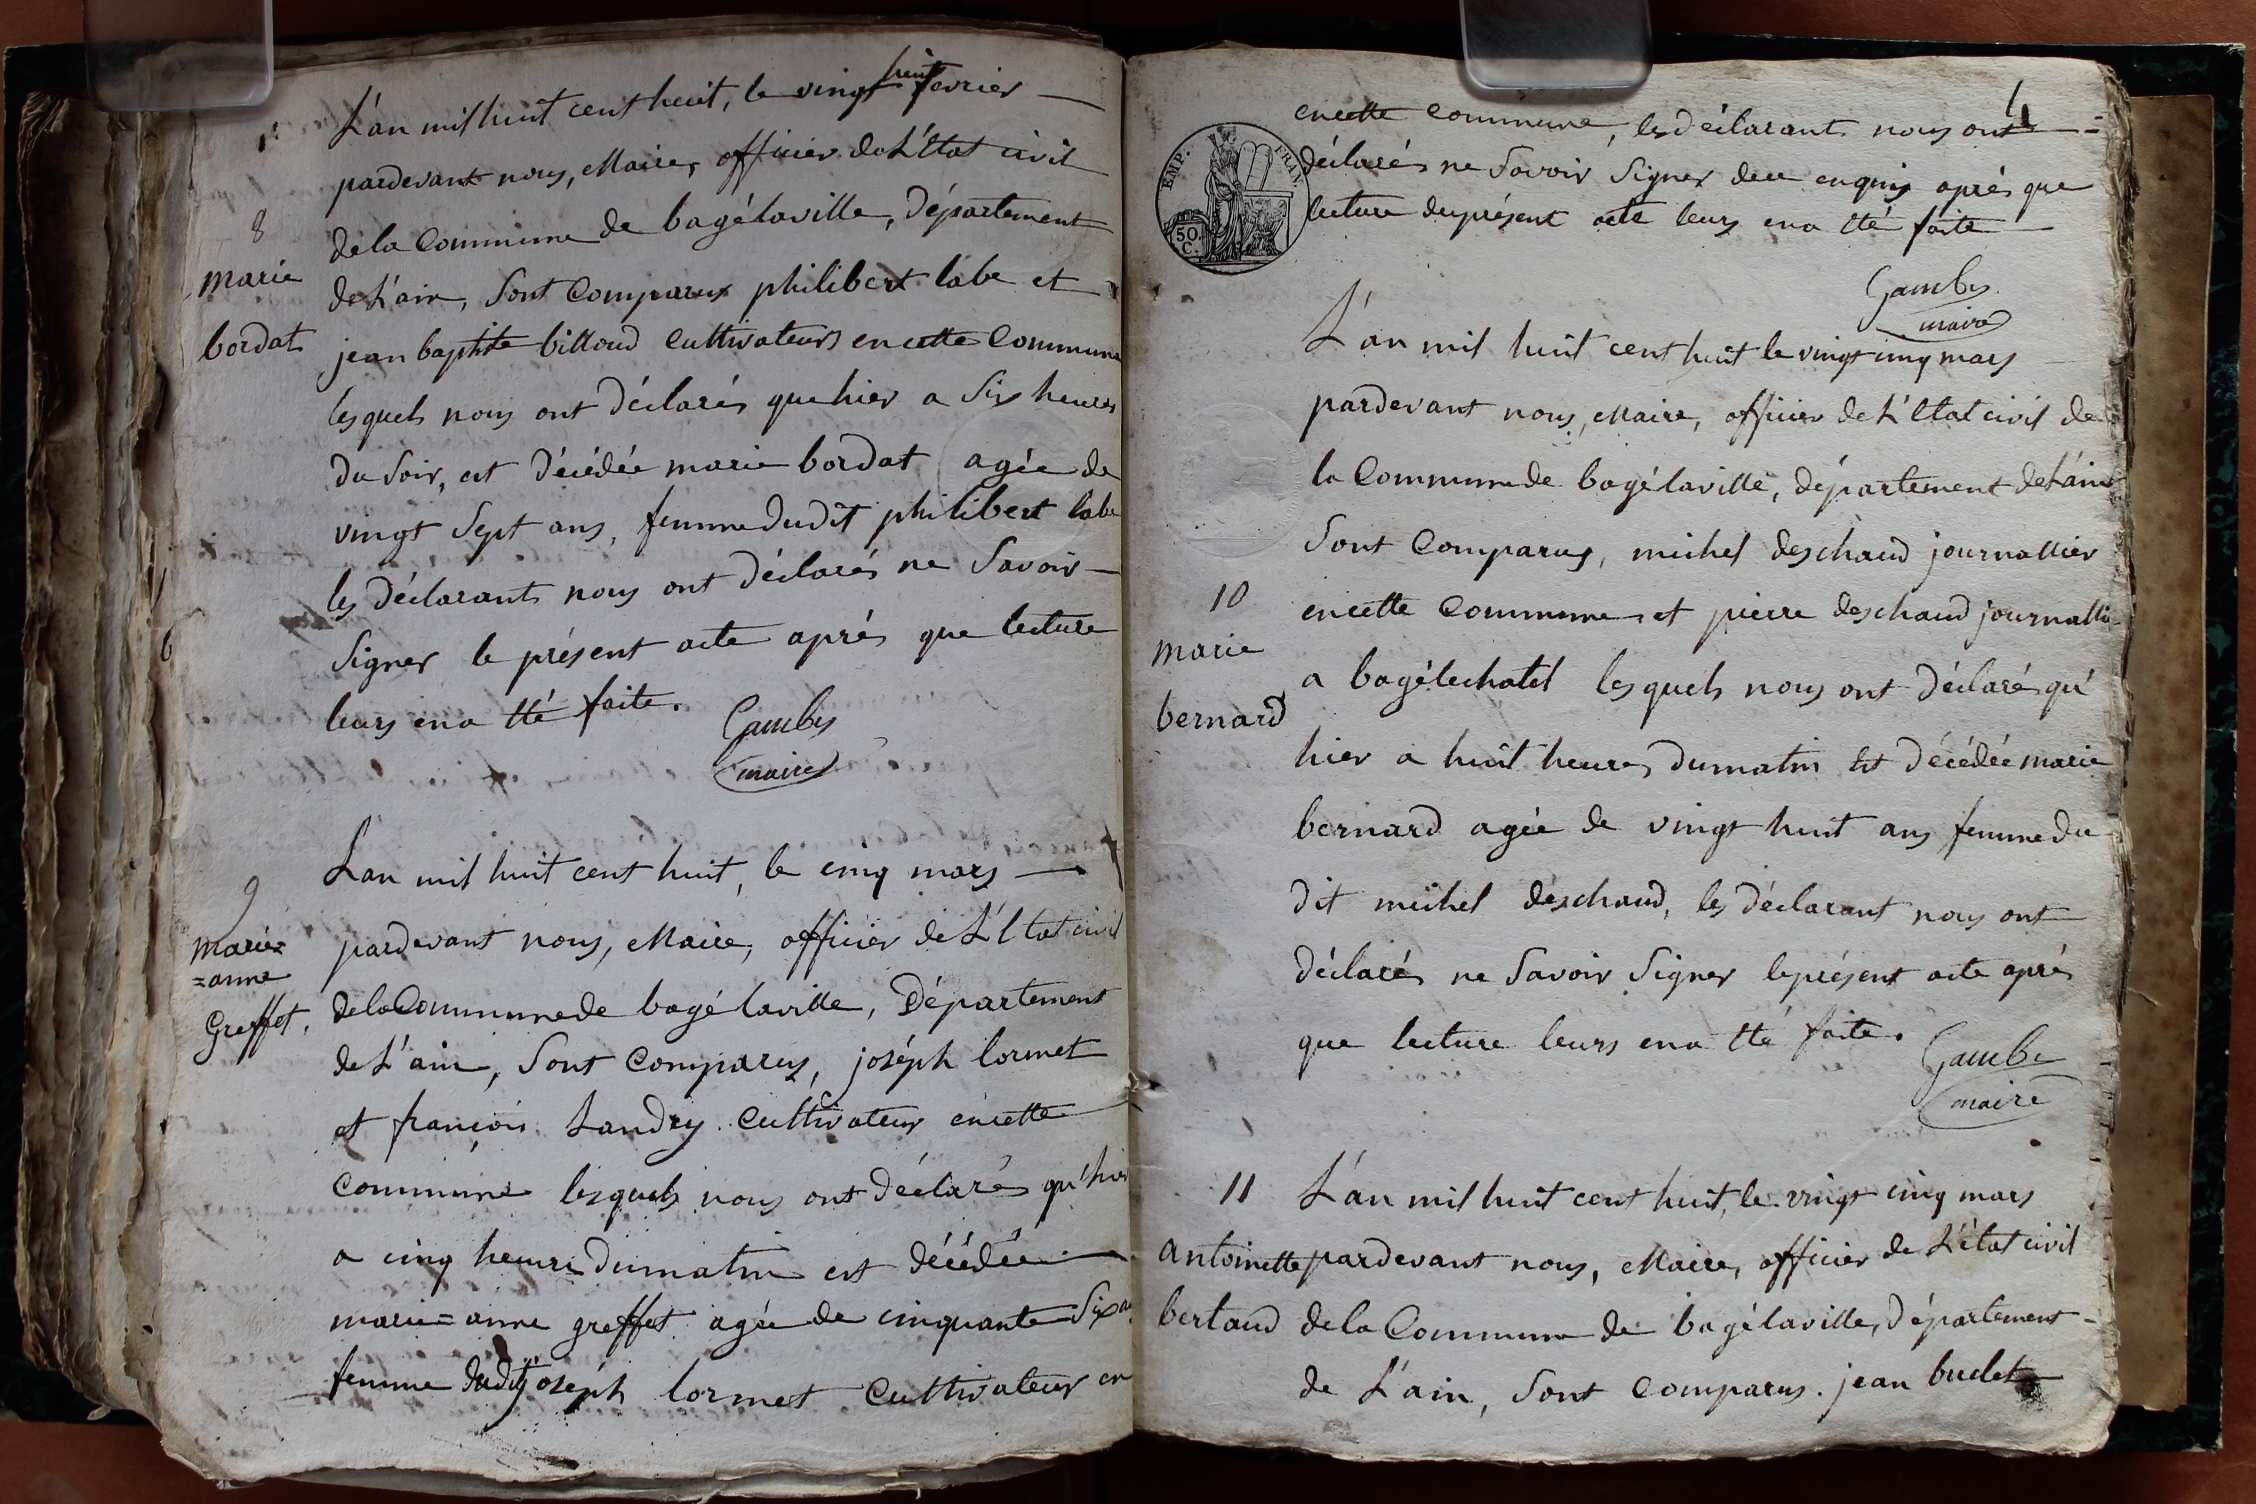 L'an mil huit cent huit, le vingt huit fevrier
pardevant nous, Maire, officier de L'Etat civil
8
de la Commune de bagélaville, département
marie
de L'ain, Sont Comparus philibert labe et
bordat
jean baptiste billoud Cultivateurs en cette Commune
lesquels nous ont déclarés que hier a Six heures
du Soir, est décédée marie bordat agée de
vingt Sept ans, femme dudit philibert labe
les déclarants nous ont déclarés ne Savoir
Signer le présent acte aprés que lecture
leurs en a Eté faite.
Gambes
maire
L'an mil huit cent huit, le cinq mars
9
marie=
=anne
Greffet,
pardevant nous, Maire, officier de L'Etat civil
de la Commune de bagé laville, Département
de L'ain, Sont Comparus, joséph lormet
et françois Landry Cultivateurs en cette
Commune lesquels nous ont déclarés qu'hier
a cinq heures du matin est décédée
marie=anne greffet agée de cinquante Six ans
femme dudit joséph lormet Cultivateur en
4
en cette Commune, les déclarants nous ont
déclarés ne Savoir Signer de ce enquis aprés que
lecture du présent acte leurs en a Eté faite
EMP. FRAN.
50 C.
Gambes
maire
L'an mil huit cent huit le vingt cinq mars
pardevant nous, Maire, officier de L'Etat civil de
la Commune de bagélaville, département de L'ain
Sont Comparus, michel deschaud journallier
10
en cette Commune et pierre deschaud journallier
marie
a bagélechatel lesquels nous ont déclarés qu'
bernard
hier a huit heures du matin Est décédée marie
bernard agée de vingt huit ans femme du
dit michel deschaud, les déclarant nous ont
déclarés ne Savoir Signer le présent acte aprés
que lecture leurs en a Eté faite.
Gambe
maire
11
L'an mil huit cent huit, le vingt cinq mars
antoinette
pardevant nous, Maire, officier de L'état civil
bertaud
de la Commune de bagélaville, département
de L'ain, Sont Comparus. jean budet